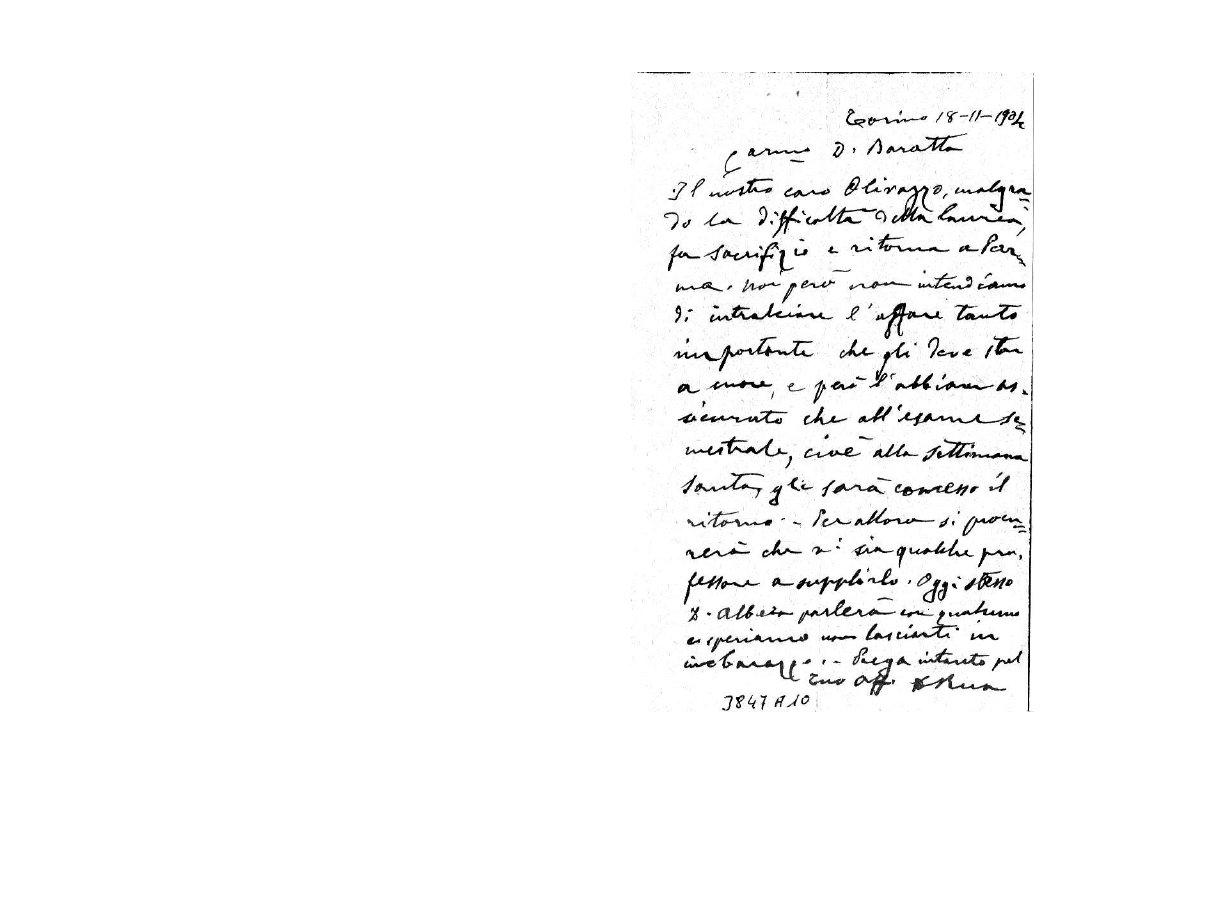 Torino 18-11-1904
Carmo D. Baratta
Il nostro caro Olivazzo, malgra=
do la difficoltà della laurea,
fa sacrifizio e ritorna a Par=
ma. Noi però non intendiamo
di intralciare l'affare tanto
importante che gli deve star
a cuore, e però l'abbiam as-
sicurato che all'esame se=
mestrale, cioè alla settimana
santa, gli sarà concesso il
ritorno. - Per allora si procu=
rerà che vi sia qualche pro-
fessore a supplirlo. Oggi stesso
D. Albera parlerà con qualcuno
e speriamo non lasciarti in
imbarazzo. - Prega intanto pel
Tuo aff. D Rua
3847 A 10